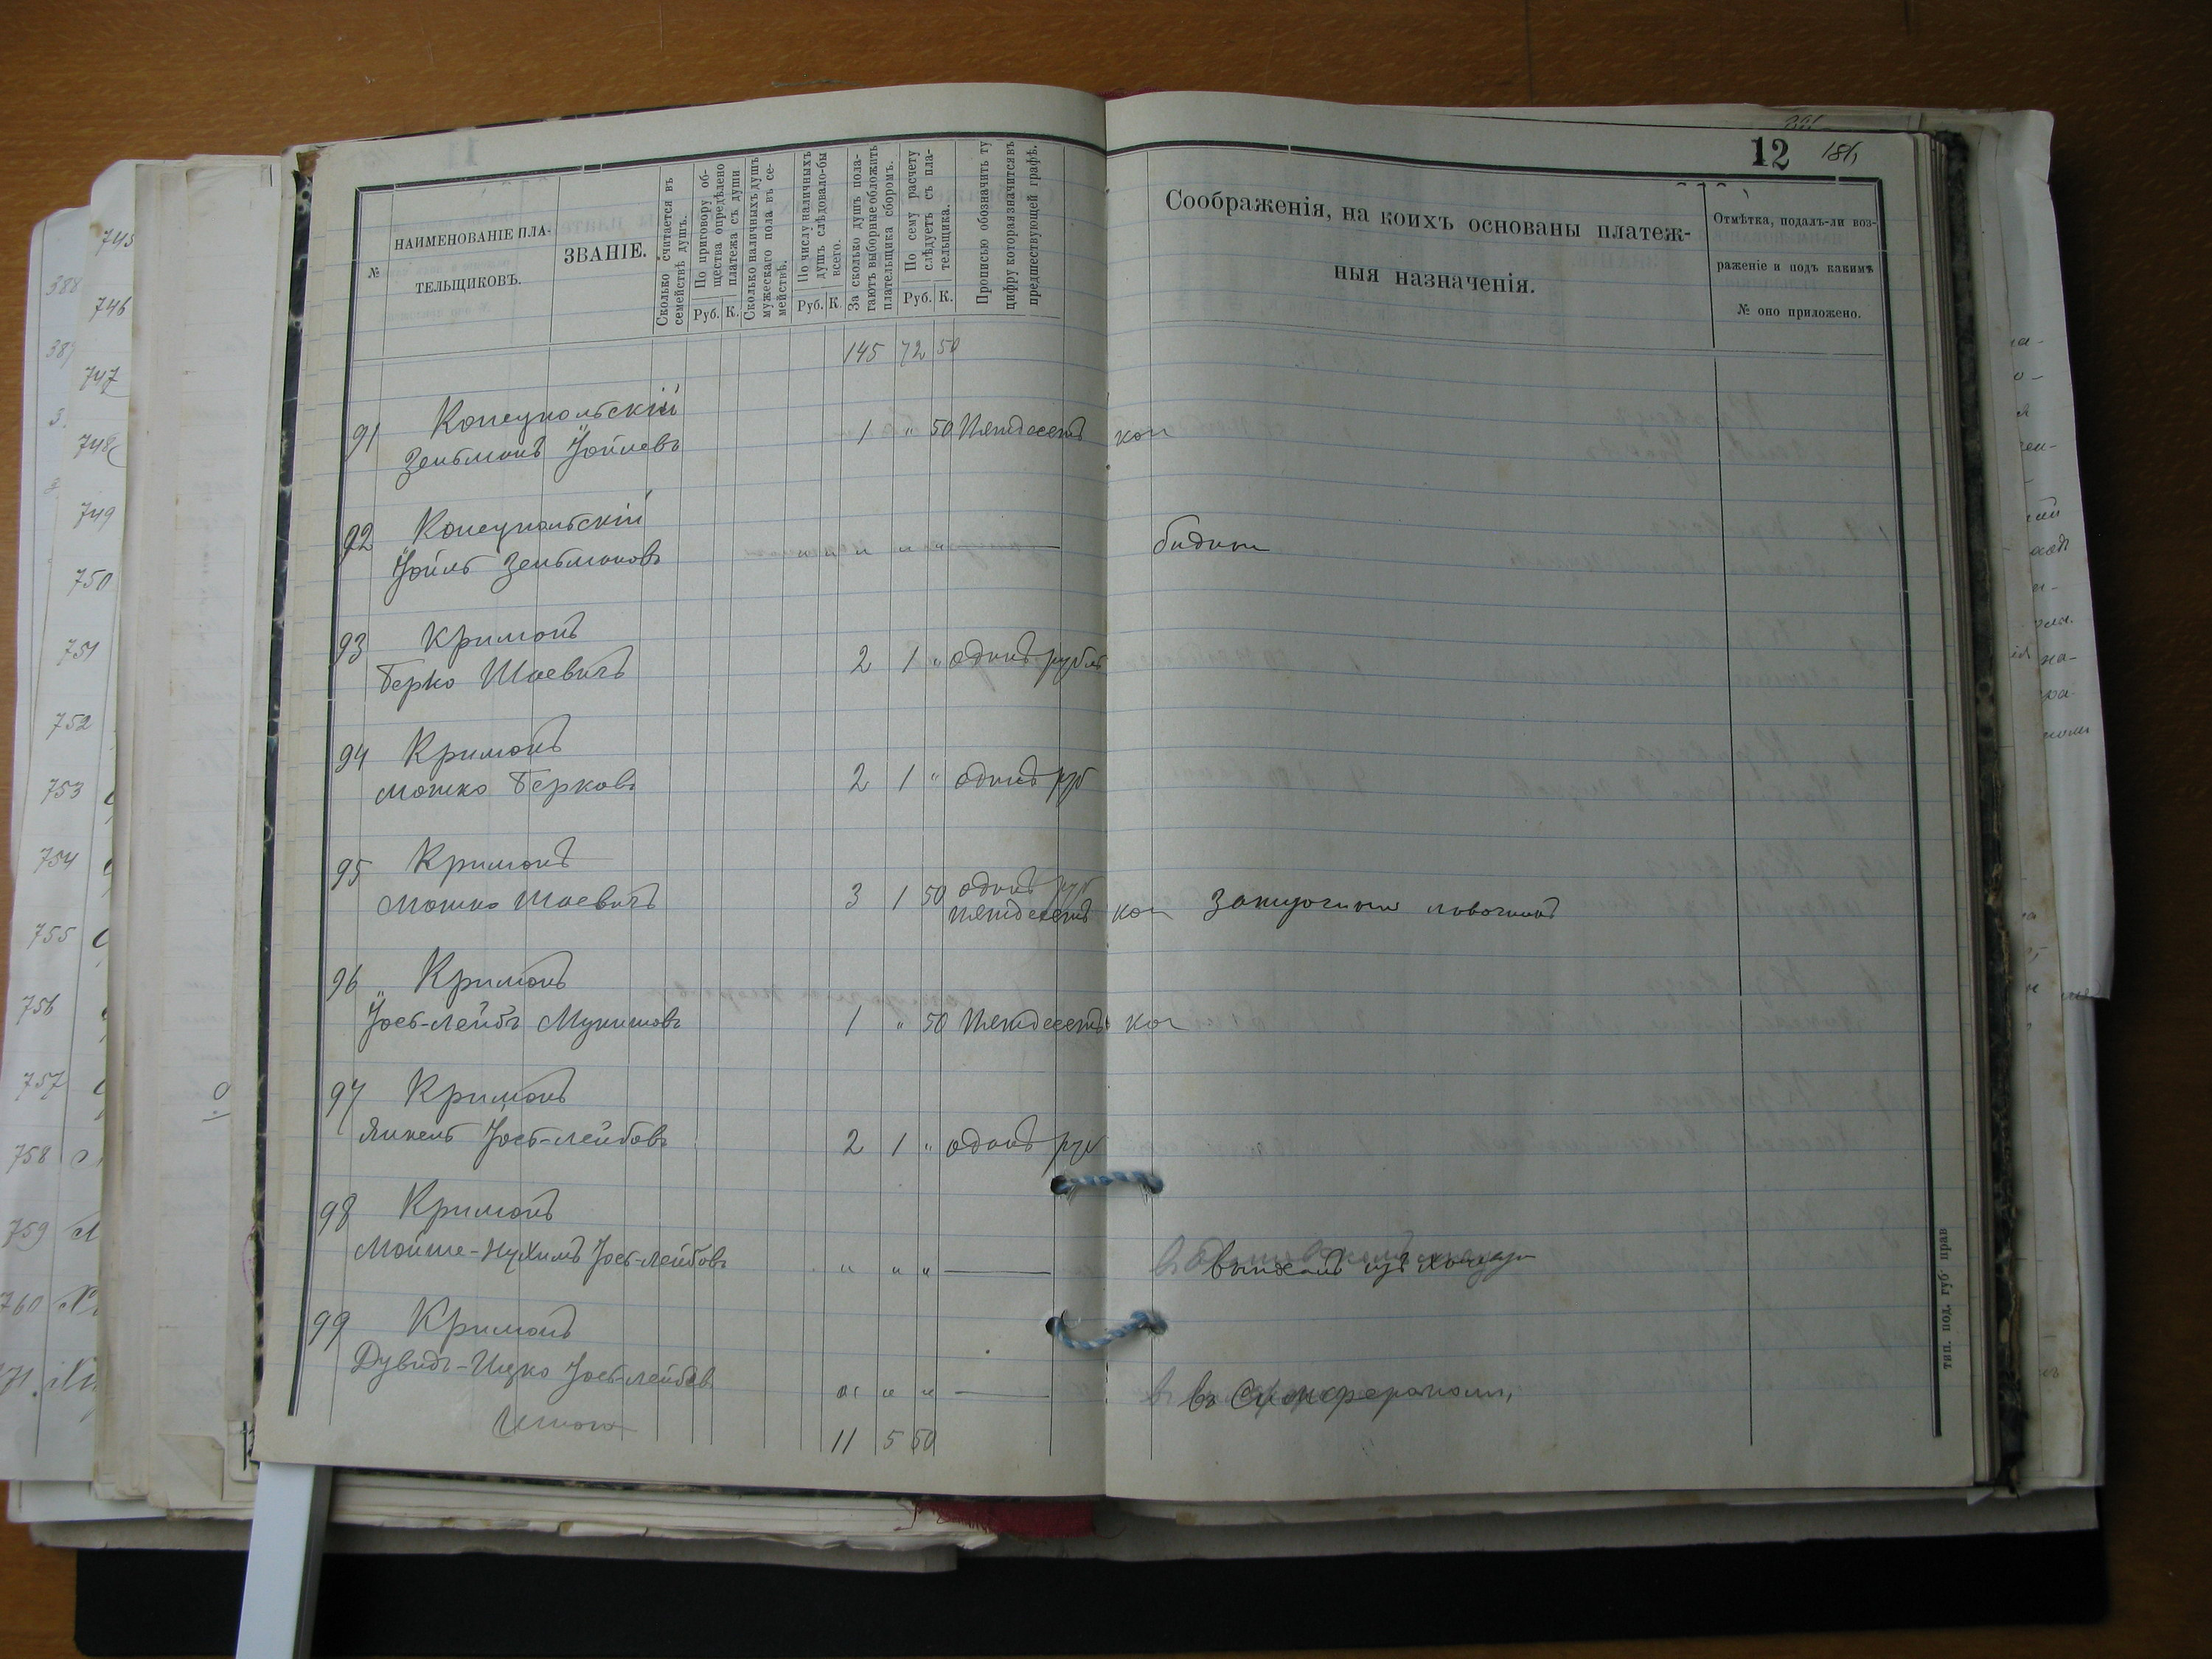 12 181
№
НАИМЕНОВАНІЕ ПЛА-
ТЕЛЬЩИКОВЪ.
ЗВАНІЕ.
Сколько считается въ
семействѣ душъ.
По приговору об-
щества опредѣлено
платежа съ души
Руб. К.
Сколько наличныхъ душъ
мужескаго пола въ се-
мействѣ.
По числу наличныхъ
душъ слѣдовало-бы
всего.
Руб. К.
За сколько душъ пола-
гаютъ выборные обложить
плательщика сборомъ.
По сему расчету
слѣдуетъ съ пла-
тельщика.
Руб. К.
Прописью обозначить ту
цифру которая значится въ
предшествующей графѣ.
Соображенія, на коихъ основаны платеж-
ныя назначенія.
Отмѣтка, подалъ-ли воз-
раженіе и подъ какимъ
№ оно приложено.
145 72 50
91 Конецпольскій
Зельманъ Іойлевъ 1 " 50 Пятдесятъ коп
92 Конецпольскій
Іойль Зельмановъ " " " " " — бидный
93 Крimanъ
Берко Шаевичъ 2 1 " одинъ рубль
94 Криманъ
Мошко Берковъ 2 1 " одинъ руб
95 Криманъ
Мошко Шаевичъ 3 1 50 одинъ руб
пятдесятъ коп зажиточный лавочникъ
96 " Криманъ
Іось-Лейбъ 1 " 50 Пятдесятъ коп
97 Криманъ
Янкель Іось-Лейбовъ 2 1 " одинъ руб
98 Криманъ
Мойше-Нухимъ Іось-Лейбовъ " " " —
99 Криманъ
Дувидъ-Ицко Іось-Лейбовъ " " " — въ Симферополи,
Итого 11 5 50
тип. под. губ. прав
745
746
747
748
749
750
751
752
753
754
755
756
757
758
759
760